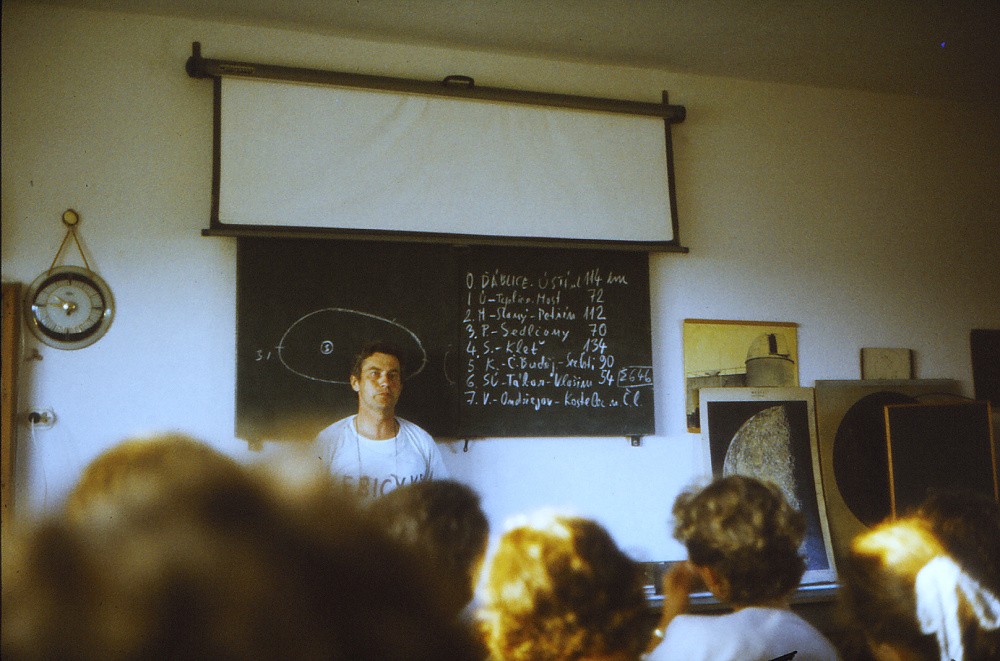 0 ĎÁBLICE - ÚSTÍ n.L 114 km
1 Ú - Teplice - Most 72
2. M - Slaný - Petřín 112
3. P. - Sedlčany 70
4. S. - Kleť 134
5. K. - Č. Buděj - Sezbl 90
6. SÚ - Tábor - Vlašim 54 Σ646
7. V. - Ondřejov - Kostelec n. Č.l.
31
EBICYK